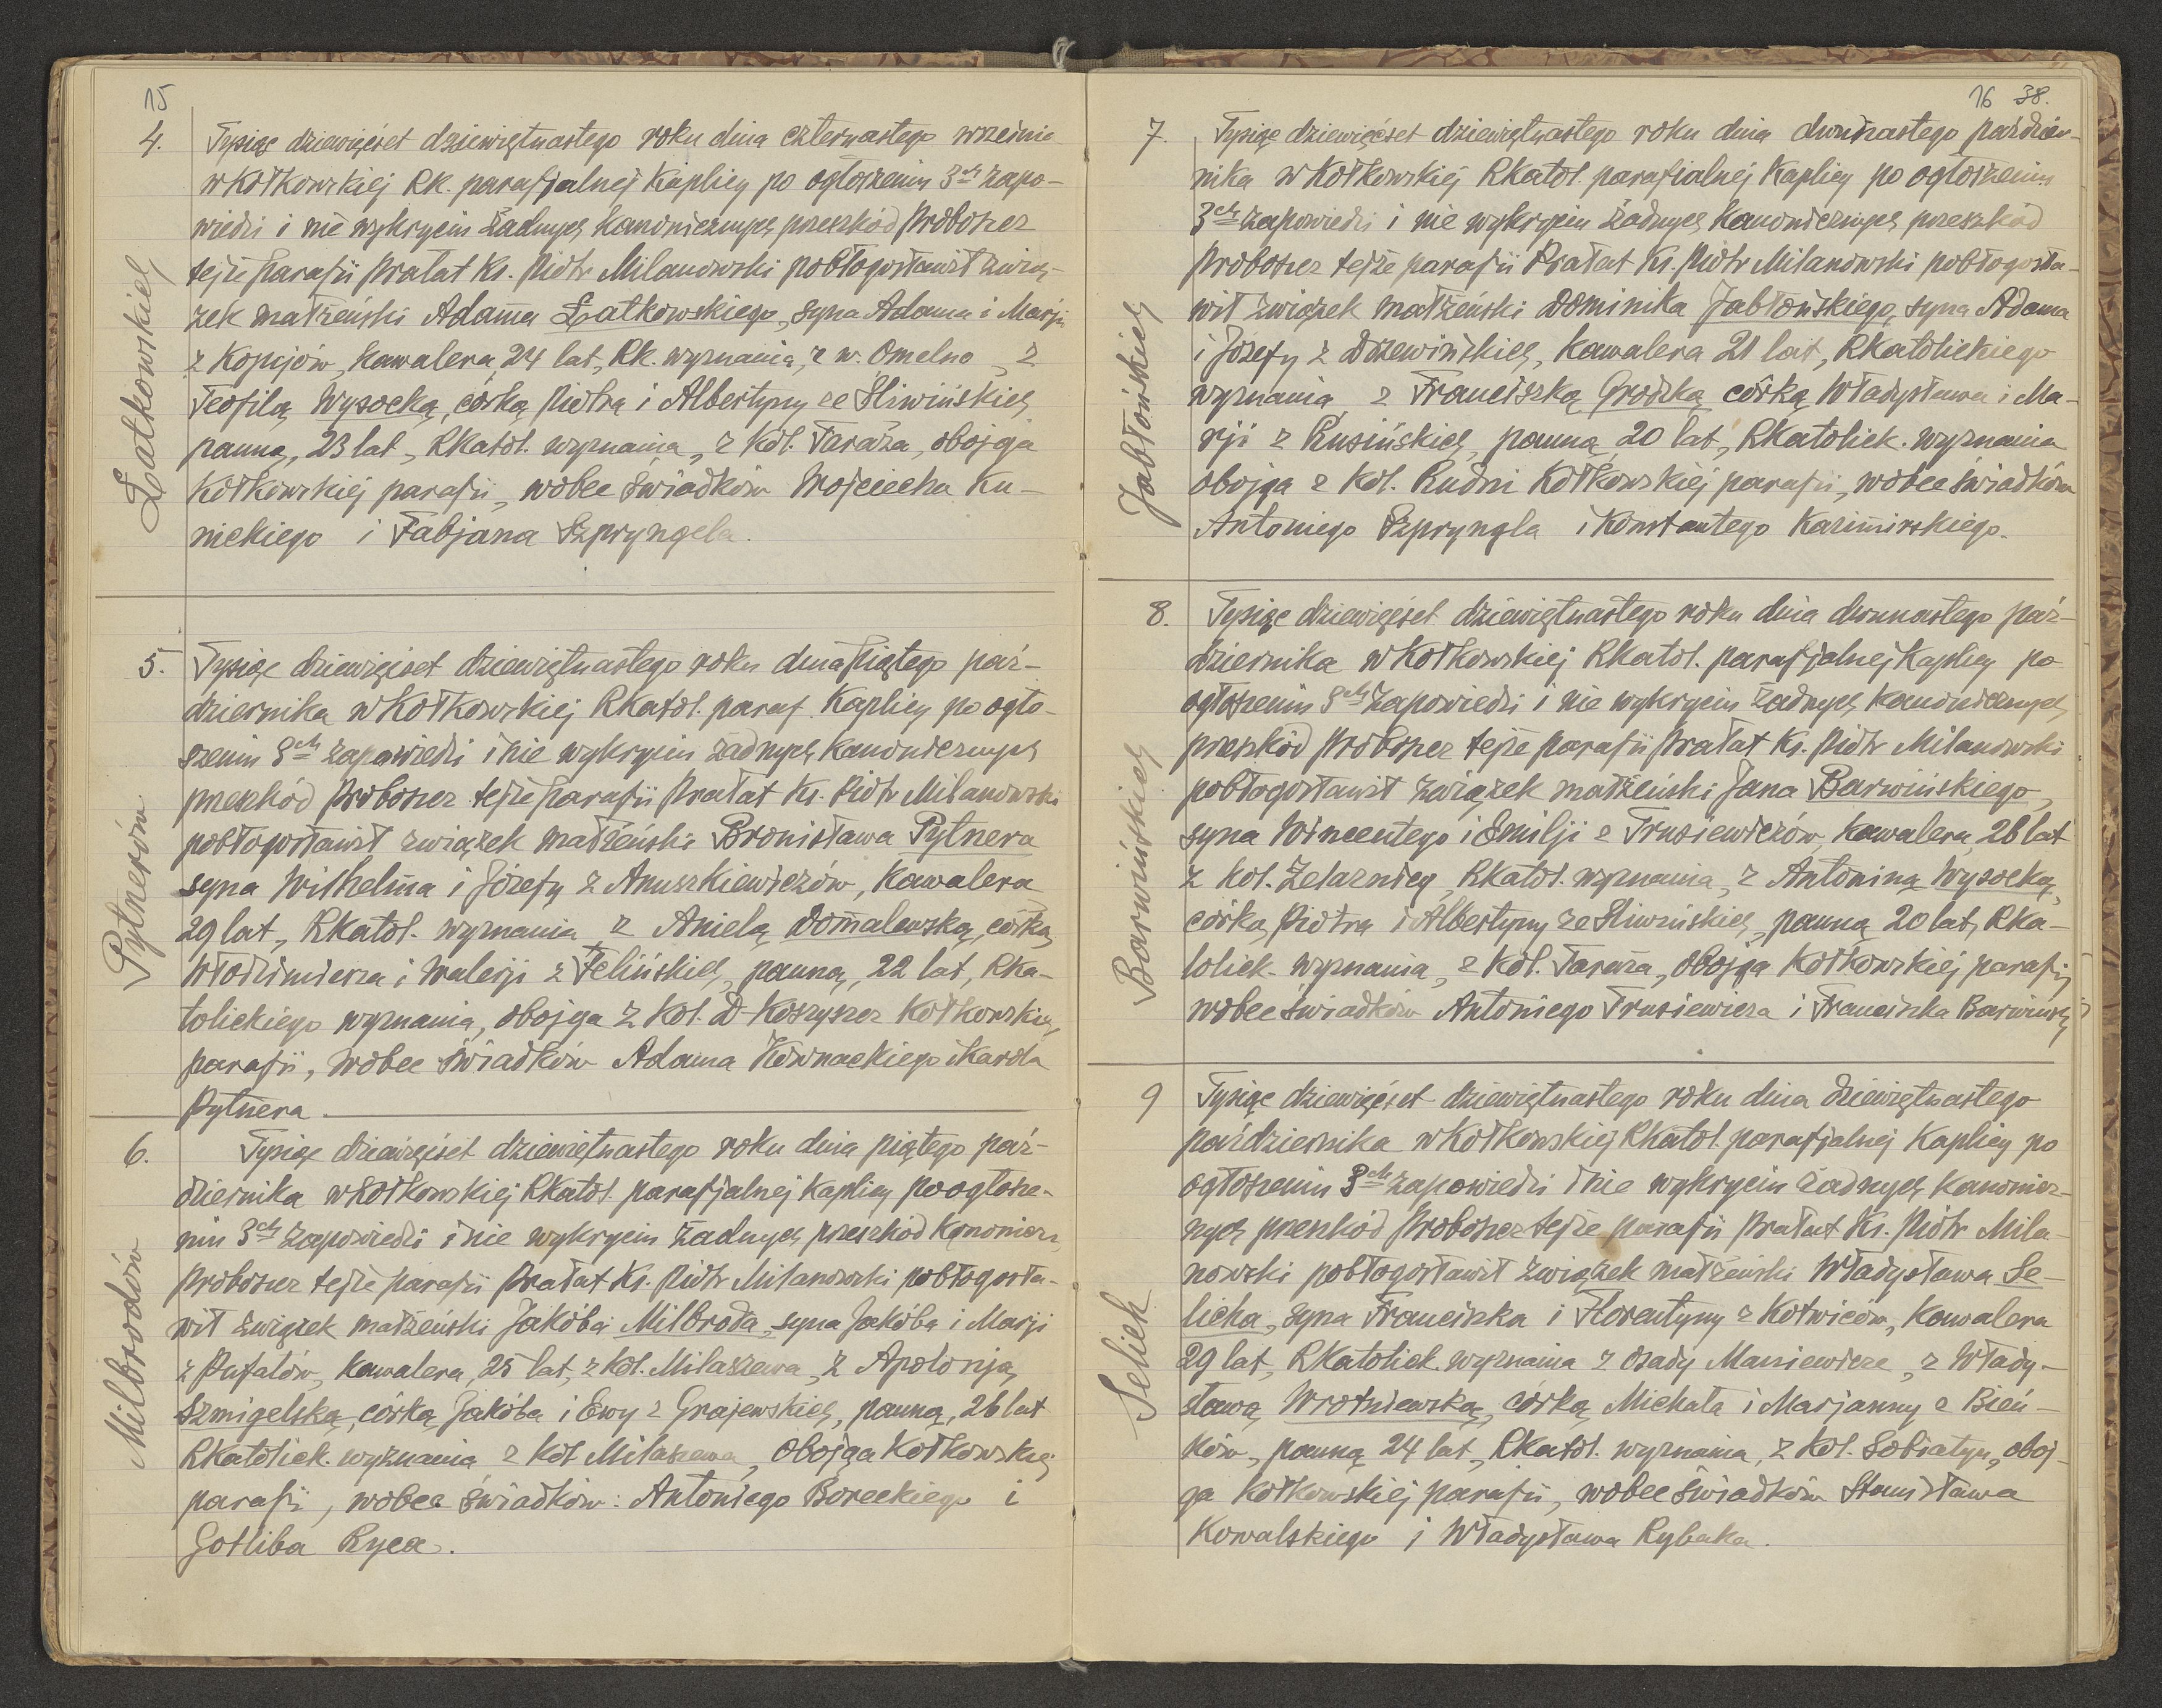 15
4.
Tysiąc dziewięćset dziewiętnastego roku dnia czternastego wrześnie
w Kołkowskiej RK. parafjalnej Kaplicy po ogłoszeniu 3ch zapo-
wiedzi i nie wykryciu żadnych kanonicznych przeszkód Proboszcz
tejże parafii Prałat Ks. Piotr Milanowski pobłogosławił zwią-
zek małżeński Adama Łatkowskiego, syna Adama i Marji
z Kopciów, kawalera, 24 lat, RK. wyznania, z w. Omelno, z
Teofilą Wysocką, córką Piotra i Albertyny ze Śliwińskich
panną, 23 lat, RKatol. wyznania, z kol. Taraża, obojga
Kołkowskiej parafii, wobec świadków Wojciecha Ku-
nickiego i Fabjana Szpryngela.
Łatkowskich
5.
Tysiąc dziewięćset dziewiętnastego roku dnia piątego paź-
dziernika w Kołkowskiej RKatol. paraf. Kaplicy po ogło-
szeniu 3ch zapowiedzi i nie wykryciu żadnych kanonicznych
przeszkód Proboszcz tejże parafii Prałat Ks. Piotr Milanowski
pobłogosławił związek małżeński Bronisława Pytnera
syna Wilhelma i Józefy z Anuszkiewiczów, kawalera
29 lat, RKatol. wyznania z Anielą Domalewską, córką
Włodzimierza i Walerji z Felińskich, panną, 22 lat, Rka-
tolickiego wyznania, obojga z kol. D-Koszyszcz Kołkowskiej
parafii, wobec świadków Adama Kownackiego i Karola
Pytnera.
Pytnerów
6.
Tysiąc dziewięćset dziewiętnastego roku dnia piątego paź-
dziernika w Kołkowskiej RKatol. parafjalnej Kaplicy po ogłosze-
niu 3ch zapowiedzi i nie wykryciu żadnych przeszkód kanonicz.
Proboszcz tejże parafii Prałat Ks. Piotr Milanowski pobłogosła-
wił związek małżeński Jakóba Milbroda, syna Jakóba i Marji
z Pufalów, kawalera, 25 lat, z kol. Milaszewa, z Apolonją
Szmigelską, córką Jakóba i Ewy z Grajewskich, panną, 26 lat
RKatolick. wyznania z kol Milaszewa, obojga Kołkowskiej
parafii, wobec świadków: Antoniego Boreckiego i
Gotliba Ryca.
Milbrodów
16 38.
7.
Tysiąc dziewięćset dziewiętnastego roku dnia dwunastego paździer-
nika w Kołkowskiej RKatol. parafialnej Kaplicy po ogłoszeniu
3ch zapowiedzi i nie wykryciu żadnych kanonicznych przeszkód
Proboszcz tejże parafii Prałat Ks. Piotr Milanowski pobłogosła-
wił związek małżeński Dominika Jabłońskiego, syna Adama
i Józefy z Drzewińskich, kawalera 21 lat, RKatolickiego
wyznania z Franciszką Grodzką córką Władysława i Ma-
rji z Rusińskich, panną 20 lat, RKatolick. wyznania
obojga z kol. Rudni Kołkowskiej parafii, wobec świadków
Antoniego Szpryngla i Konstantego Kazimirskiego.
Jabłońskich
8.
Tysiąc dziewięćset dziewiętnastego roku dnia dwunastego paź-
dziernika w Kołkowskiej RKatol. parafjalnej Kaplicy po
ogłoszeniu 3ch zapowiedzi i nie wykryciu żadnych kanonicznych
przeszkód Proboszcz tejże parafii Prałat Ks. Piotr Milanowski
pobłogosławił związek małżeński Jana Barwińskiego,
syna Wincentego i Emilji z Trusiewiczów, kawalera, 26 lat
z kol. Żelaznicy, RKatol. wyznania, z Antoniną Wysocką,
córką Piotra i Albertyny ze Śliwińskich, panną 20 lat, Rka-
tolick. wyznania, z kol. Taraża, obojga Kołkowskiej parafij
wobec świadków Antoniego Trusiewicza i Franciszka Barwińsk.
Barwińskich
9
Tysiąc dziewięćset dziewiętnastego roku dnia dziewiętnastego
października w Kołkowskiej RKatol. parafjalnej Kaplicy po
ogłoszeniu 3ch zapowiedzi i nie wykryciu żadnych kanonicz-
nych przeszkód Proboszcz tejże parafii Prałat Ks. Piotr Mila-
nowski pobłogosławił związek małżeński Władysława Se-
licha, syna Franciszka i Florentyny z Kotwiców, kawalera
29 lat, RKatolick. wyznania z osady Maniewicze, z Włady-
sławą Wrotniewską, córką Michała i Marjanny z Bień-
ków, panną 24 lat, RKatol. wyznania, z kol. Sobiatyn, oboj-
ga Kołkowskiej parafii, wobec świadków Stanisława
Kowalskiego i Władysława Rybaka.
Selich